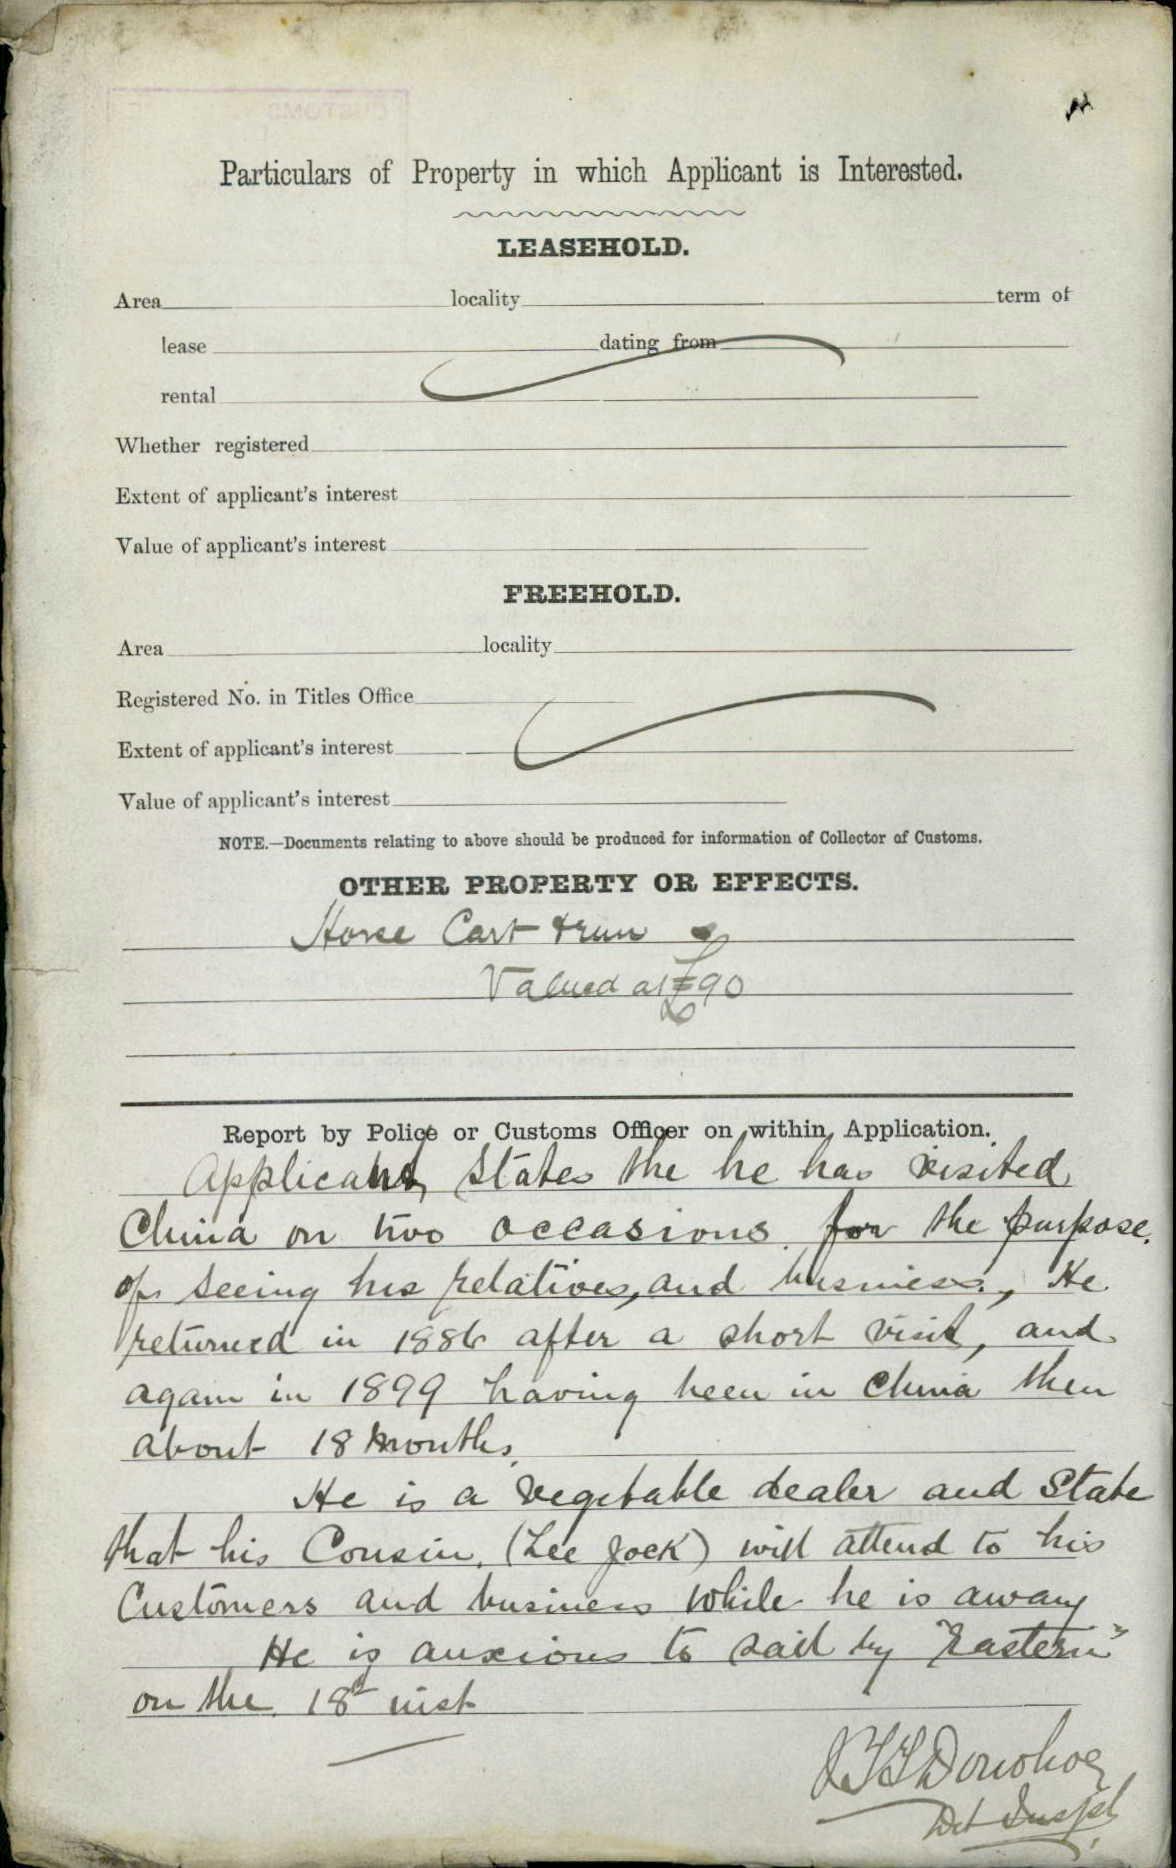 Particulars of Property in which Applicant is Interested.
LEASEHOLD.
Area locality term of
lease dating from
rental
Whether registered
Extent of applicant's interest
Value of applicant's interest
FREEHOLD.
Area locality
Registered No. in Titles Office
Extent of applicant's interest
Value of applicant's interest
NOTE.—Documents relating to above should be produced for information of Collector of Customs.
OTHER PROPERTY OR EFFECTS.
Horse Cart & run
Valued at £90
Report by Police or Customs Officer on within Application.
Applicant States the he has visited
China on two occasions for the purpose
of seeing his relatives, and business, He
returned in 1886 after a short visit, and
again in 1899 having been in China then
about 18 months.
He is a vegetable dealer and State
that his Cousin, (Lee Jock) will attend to his
Customers and business while he is away
He is anxious to sail by "Eastern"
on the 18th inst
Donohoe
Det Inspt